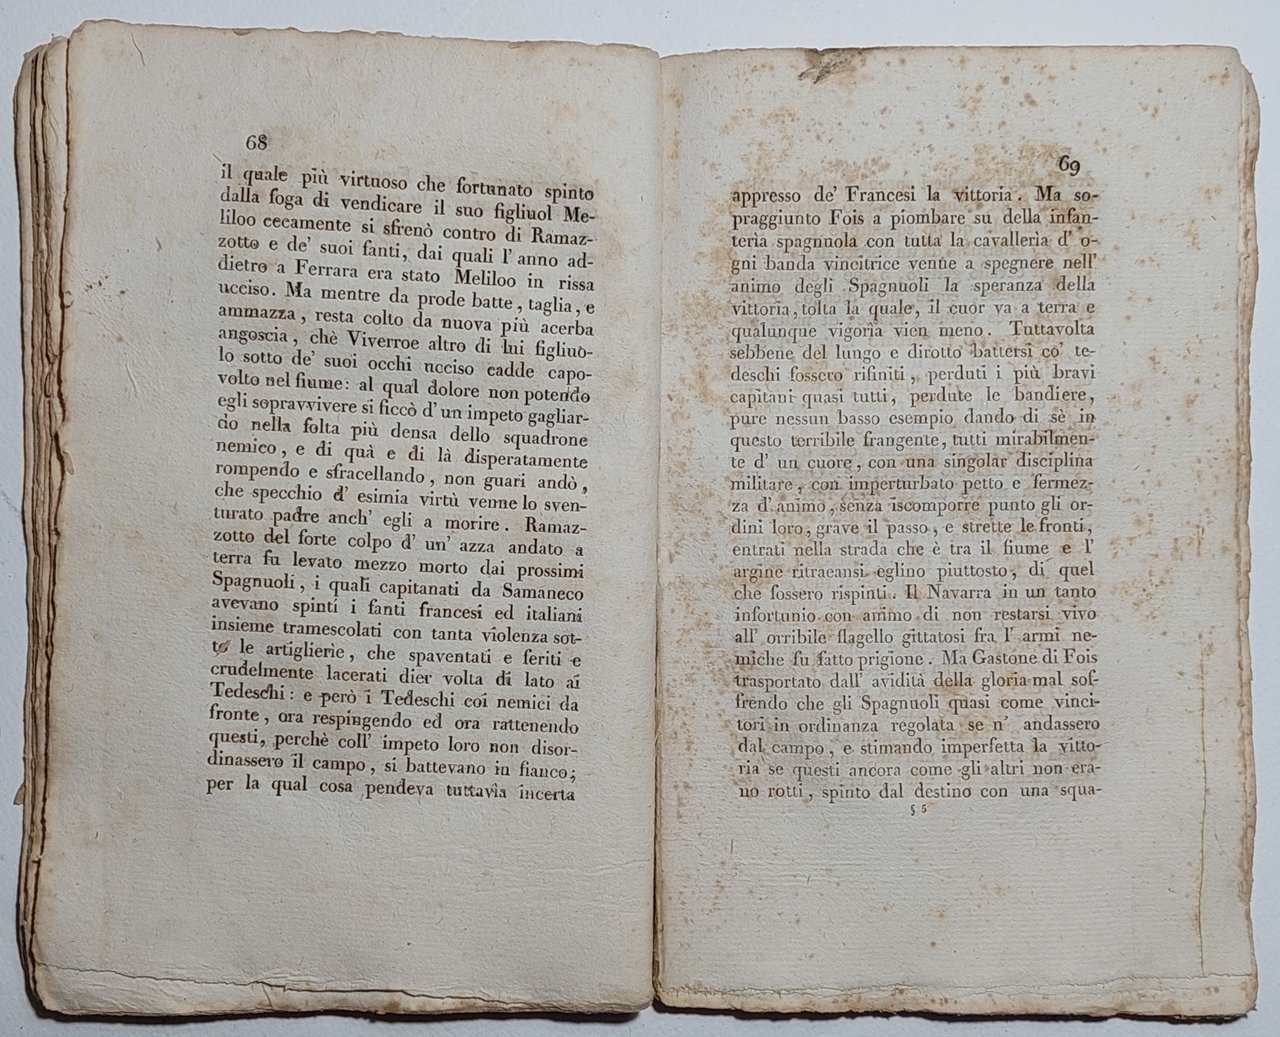 68
il quale più virtuoso che fortunato spinto
dalla foga di vendicare il suo figliuol Me-
liloo cecamente si sfrenò contro di Ramaz-
zotto e de' suoi fanti, dai quali l' anno ad-
dietro a Ferrara era stato Meliloo in rissa
ucciso. Ma mentre da prode batte, taglia, e
ammazza, resta colto da nuova più acerba
angoscia, chè Viverroe altro di lui figliuo-
lo sotto de' suoi occhi ucciso cadde capo-
volto nel fiume: al qual dolore non potendo
egli sopravvivere si ficcò d' un impeto gagliar-
do nella folta più densa dello squadrone
nemico, e di quà e di là disperatamente
rompendo e sfracellando, non guari andò,
che specchio d' esimia virtù venne lo sven-
turato padre anch' egli a morire. Ramaz-
zotto del forte colpo d' un' azza andato a
terra fu levato mezzo morto dai prossimi
Spagnuoli, i quali capitanati da Samaneco
avevano spinti i fanti francesi ed italiani
insieme tramescolati con tanta violenza sot-
to le artiglierie, che spaventati e feriti e
crudelmente lacerati dier volta di lato ai
Tedeschi: e però i Tedeschi coi nemici da
fronte, ora respingendo ed ora rattenendo
questi, perchè coll' impeto loro non disor-
dinassero il campo, si battevano in fianco;
per la qual cosa pendeva tuttavìa incerta
69
appresso de' Francesi la vittoria. Ma so-
praggiunto Fois a piombare su della infan-
terìa spagnuola con tutta la cavallerìa d' o-
gni banda vincitrice venne a spegnere nell'
animo degli Spagnuoli la speranza della
vittoria, tolta la quale, il cuor va a terra e
qualunque vigorìa vien meno. Tuttavolta
sebbene del lungo e dirotto battersi co' te-
deschi fossero rifiniti, perduti i più bravi
capitani quasi tutti, perdute le bandiere,
pure nessun basso esempio dando di sè in
questo terribile frangente, tutti mirabilmen-
te d' un cuore, con una singolar disciplina
militare, con imperturbato petto e fermez-
za d' animo, senza iscomporre punto gli or-
dini loro, grave il passo, e strette le fronti,
entrati nella strada che è tra il fiume e l'
argine ritraeansi eglino piuttosto, di quel
che fossero rispinti. Il Navarra in un tanto
infortunio con animo di non restarsi vivo
all' orribile flagello gittatosi fra l' armi ne-
miche fu fatto prigione. Ma Gastone di Fois
trasportato dall' avidità della gloria mal sof-
frendo che gli Spagnuoli quasi come vinci-
tori in ordinanza regolata se n' andassero
dal campo, e stimando imperfetta la vitto-
ria se questi ancora come gli altri non era-
no rotti, spinto dal destino con una squa-
§ 5